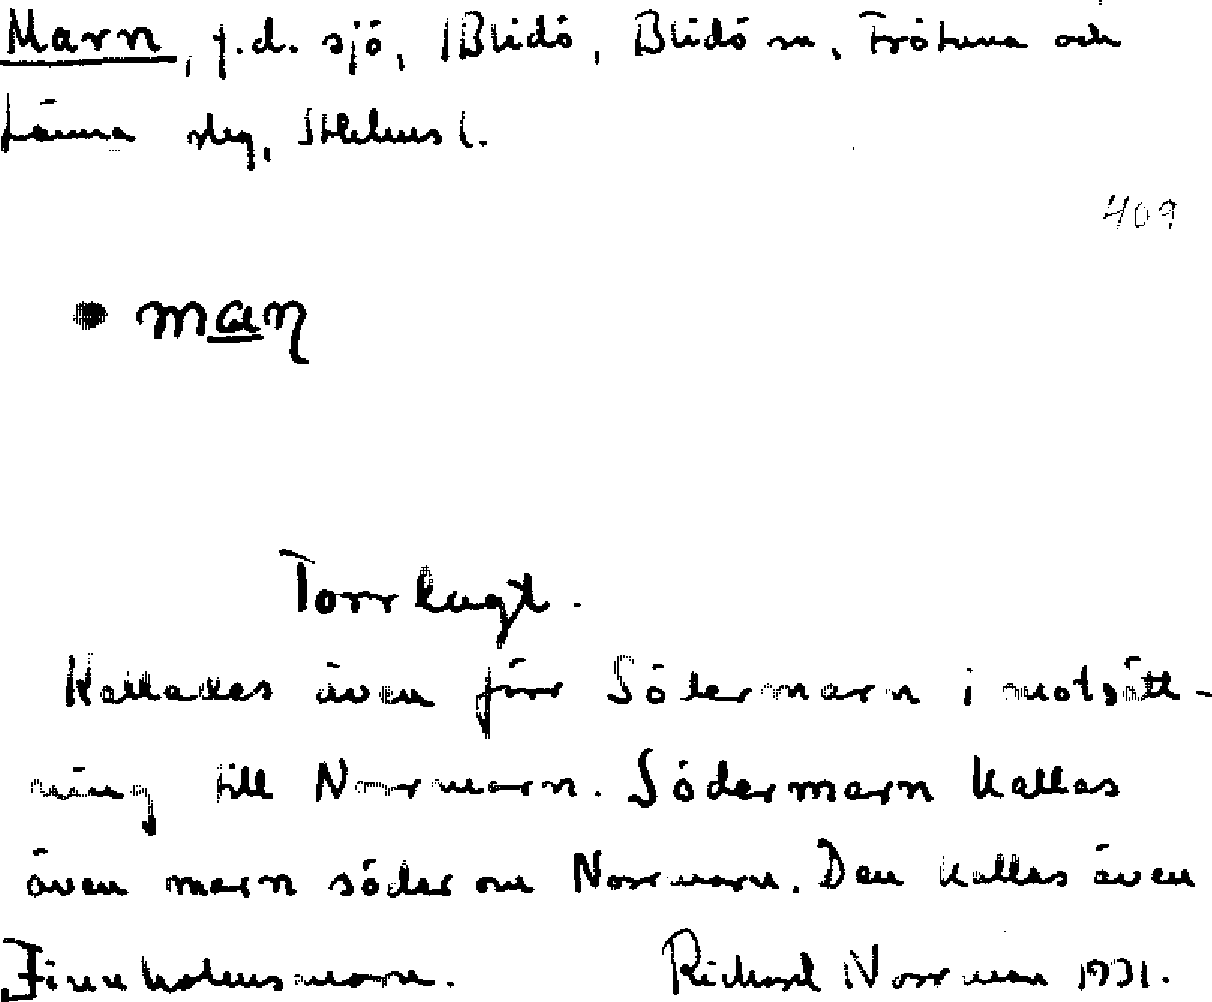 Marn, f.d. sjö, Blidö, Blidö sn, Frötuna och
Länna slg, Sthlms l.
409
maɳ
Torrlagt.
Kallades även förr Södermarn i motsätt-
ning till Norrmarn. Södermarn kallas
även marn söder om Norrmarn. Den kallas även
Finnholmsmarn. Richard Norrman 1931.